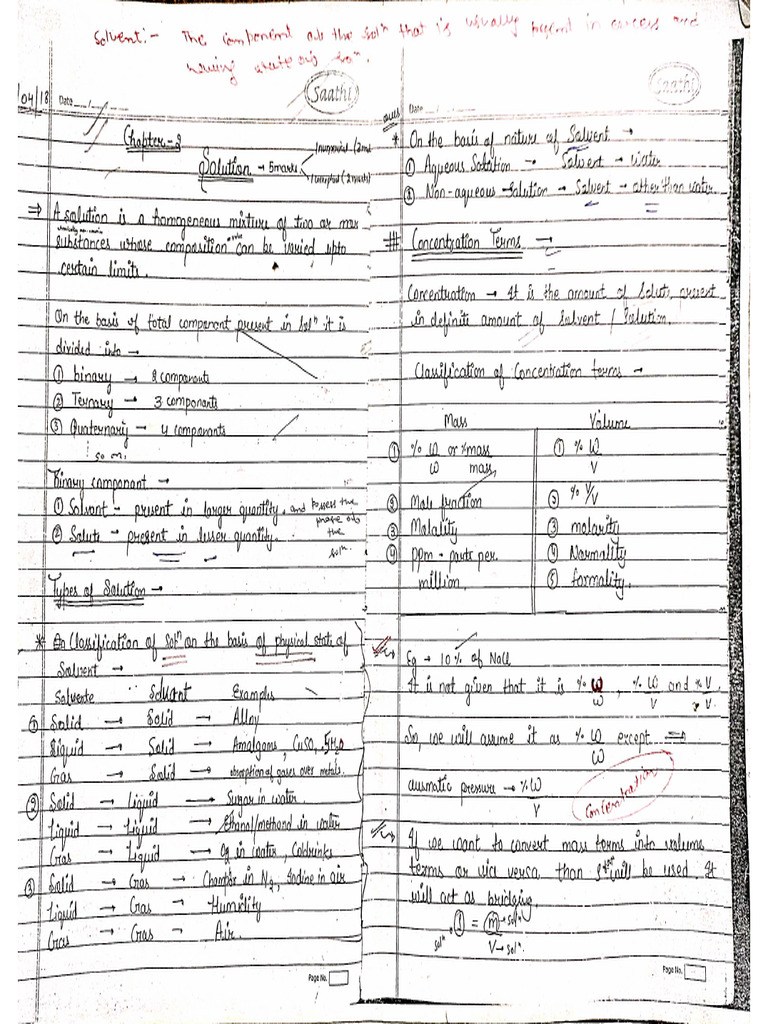 Solvent:- The component of the solⁿ that is usually present in excess and
having state of solⁿ.
Saathi
/04/18 Date __/__/__
Chapter-2
Solution → 5 marks
numerical (2m
conceptual (2 marks)
⇒ A solution is a homogeneous mixture of two or mor
substances whose composition can be varied upto
certain limits.
On the basis of total componant present in Solⁿ it is
divided into →
① binary → 2 components
② Ternary → 3 components
③ Quaternary → 4 componants
so on.
Binary componant →
① Solvant - present in larger quantity. and possess the
phase of
the
solⁿ.
② Solute - present in lesser quantity.
Types of Solution →
* Classification of Solⁿ on the basis of physical state of
Solvent →
Solvente Solvant Examples
① Solid → Solid → Alloy
Liquid → Solid → Amalgams, CuSO₄.5H₂O
Gas → Solid → absorption of gases over metals.
② Solid → Liquid → Sugar in water.
Liquid → Liquid → Ethanol/methanol in water
Gas → Liquid → O₂ in water, Coldrinks
③ Solid → Gas → Champhor in N₂, Iodine in air
Liquid → Gas → Humidity
Gas → Gas → Air.
Page No.
Saathi
Date __/__/__
* On the basis of nature of Solvent →
① Aqueous Solution → Solvent → water
② Non-aqueous Solution → Solvent → other than water.
# Concentration Terms →
Concentration → It is the amount of Solute present
in definite amount of Solvent / Solution.
Classification of Concentration terms →
Mass Volume
① % W/W or % mass/mass ① % W/V
② Mole fraction ② % V/V
③ Molality ③ molarity
④ ppm - parts per ④ Normality
million. ⑤ formality.
Eg → 10% of NaCl
It is not given that it is % W/W, % W/V and % V/V.
So, we will assume it as % W/W except ⇒
ausmatic pressure → % W/V
Concentration
If we want to convert mass terms into volume
terms or vice versa, than will be used. It
will act as bridging
solⁿ. ⓓ = m → solⁿ
V → solⁿ.
Page No.